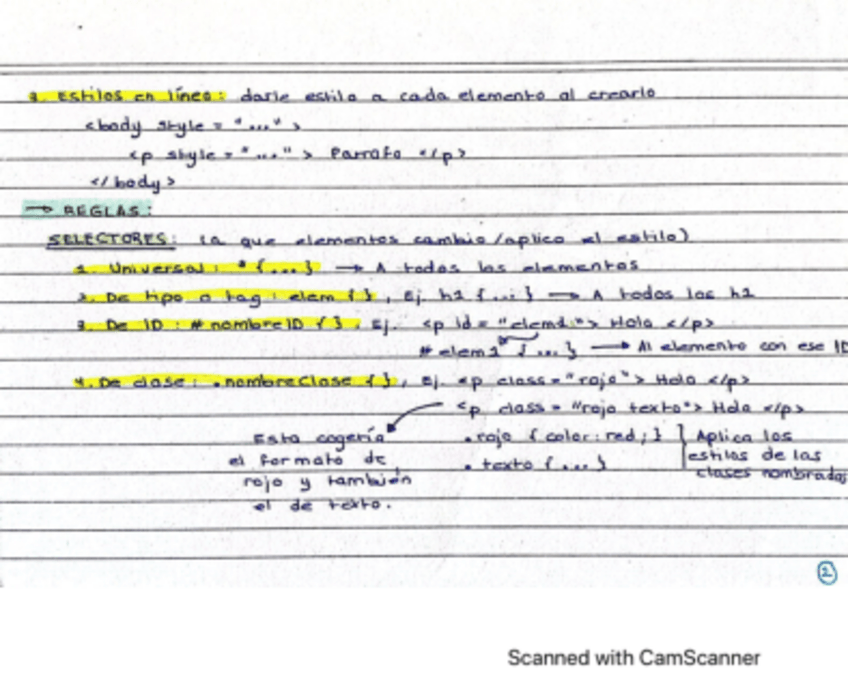 3. Estilos en línea: darle estilo a cada elemento al crearlo
<body style = "...">
<p style = "..."> Parrafo </p>
</body>
→ REGLAS:
SELECTORES: (a que elementos cambio/aplico el estilo)
1. Universal: * {...} → A todos los elementos
2. De tipo o tag: elem { }, Ej. h1 {...} → A todos los h1
3. De ID: # nombreID { }. Ej. <p id = "elem1"> Hola </p>
# elem1 {...} → Al elemento con ese ID
4. De clase: .nombreClase { }, Ej. <p class="rojo"> Hola </p>
<p class = "rojo texto"> Hola </p>
Esto cogería el formato de rojo y también el de texto.
.rojo {color: red;}
.texto {...}
Aplica los estilos de las clases nombradas
2
Scanned with CamScanner